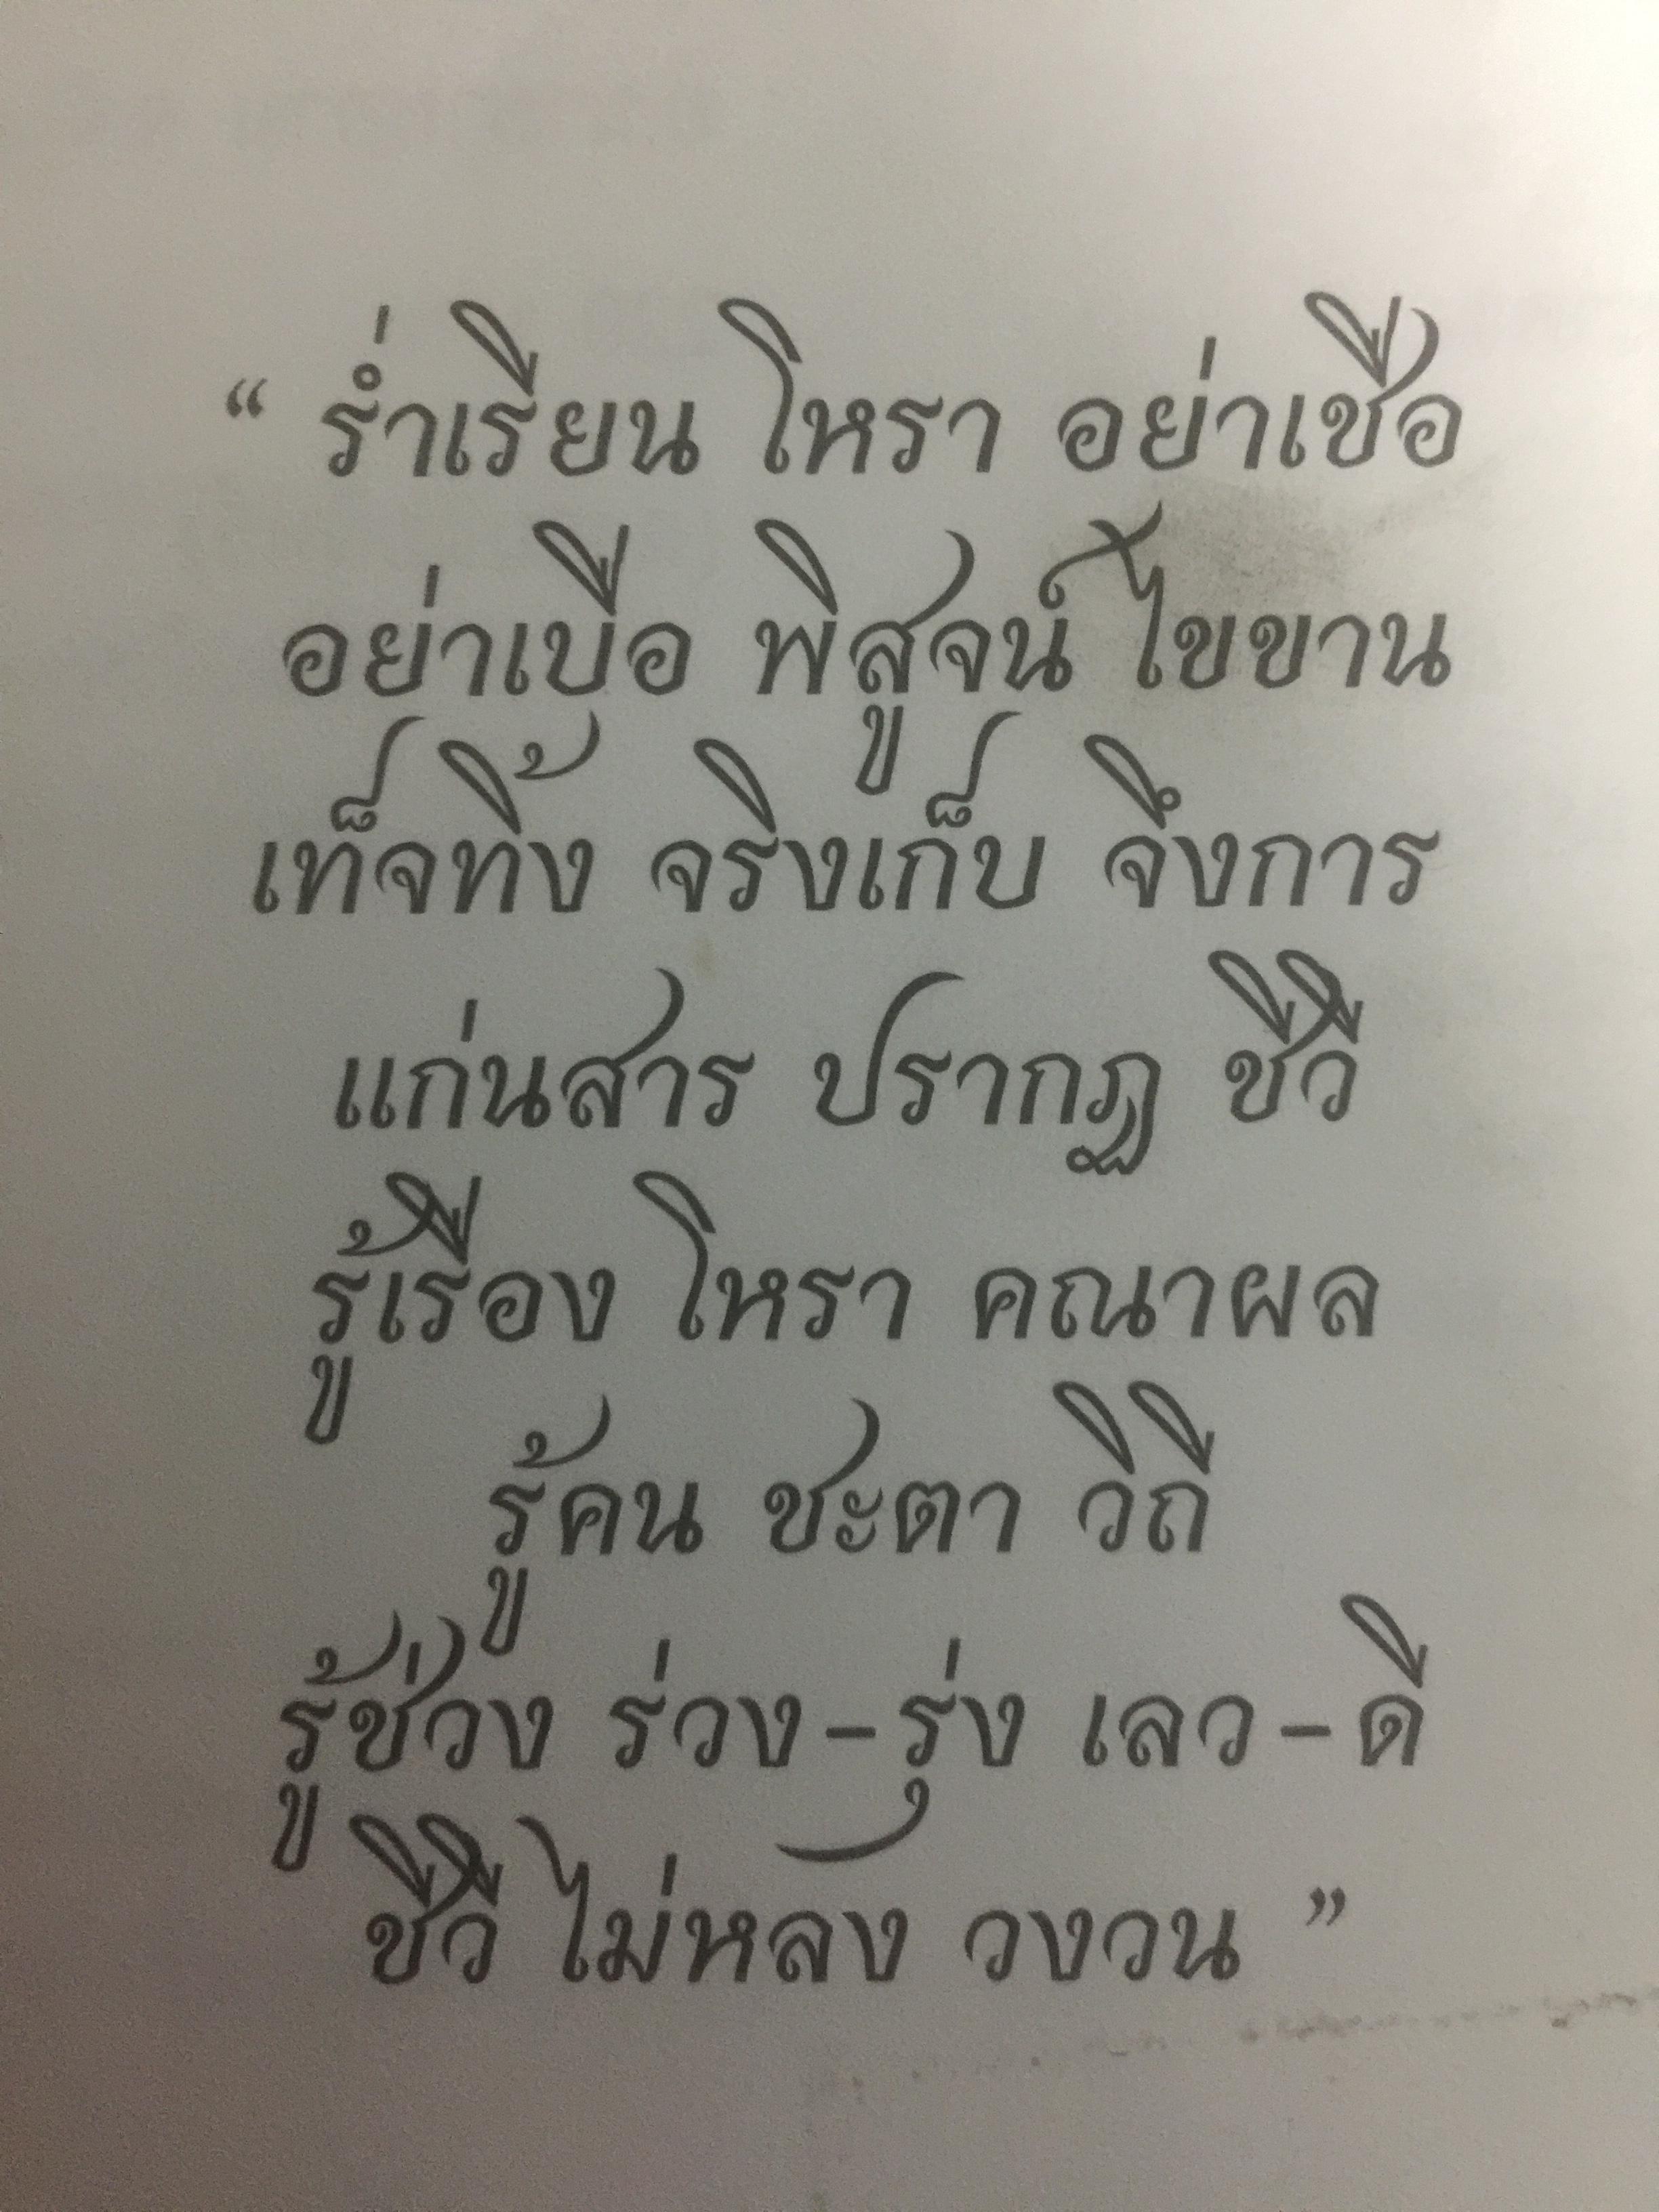 “ ร่ำเรียน โหรา อย่าเชื่อ
อย่าเบื่อ พิสูจน์ ไขขาน
เท็จทิ้ง จริงเก็บ จึงการ
แก่นสาร ปรากฏ ชีวี
รู้เรื่อง โหรา คณาผล
รู้คน ชะตา วิถี
รู้ช่วง ร่วง-รุ่ง เลว-ดี
ชีวี ไม่หลง วงวน ”